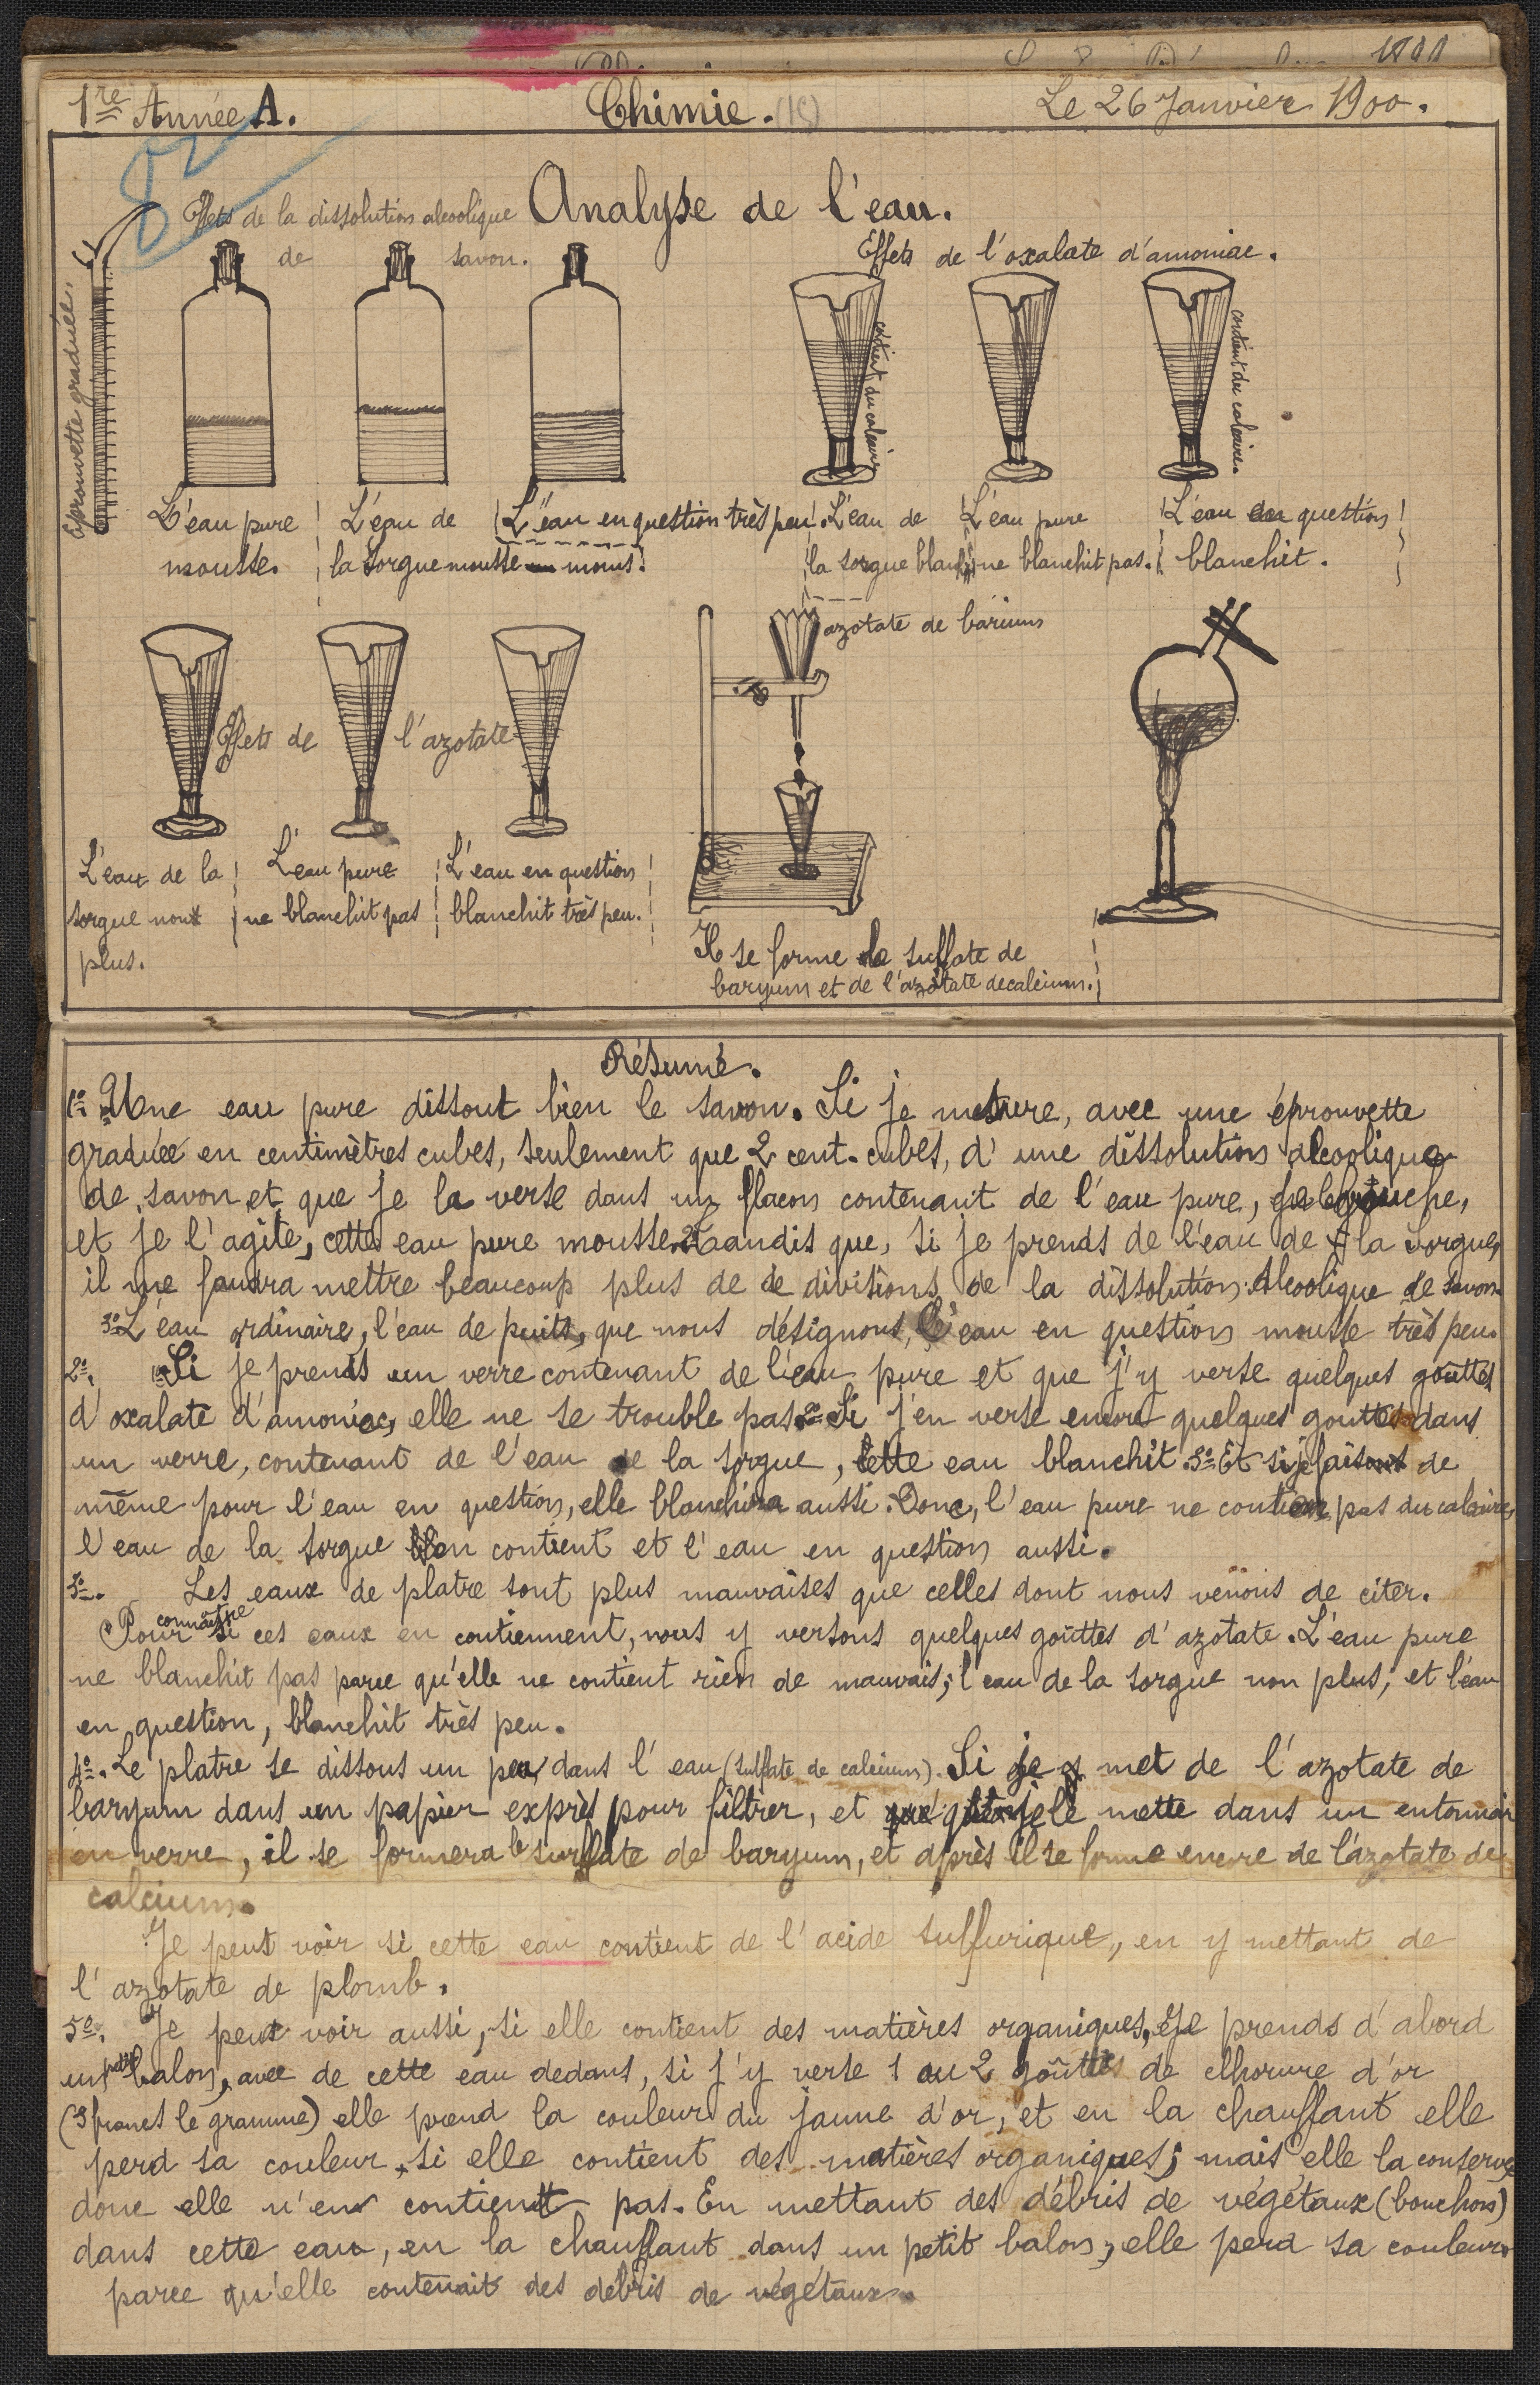 1re Année A.
Chimie.
Le 26 Janvier 1900.
Analyse de l'eau.
Effets de la dissolution alcoolique
de savon.
Effets de l'oxalate d'amoniac.
Eprouvette graduée.
contient du calcaire
contient du calcaire.
L'eau pure
mousse.
L'eau de
la Sorgue mousse moins.
L'eau en question très peu.
L'eau de
la sorgue blanchit
L'eau pure
ne blanchit pas.
L'eau en question
blanchit.
azotate de barium
Effets de l'azotate
L'eau de la
sorgue non
plus.
L'eau pure
ne blanchit pas
L'eau en question
blanchit très peu.
Il se forme de sulfate de
baryum et de l'azotate de calcium.
Résumé.
1º Une eau pure dissout bien le savon. Si je mesure, avec une éprouvette
graduée en centimètres cubes, seulement que 2 cent. cubes, d'une dissolution alcoolique
de savon et que je la verse dans un flacon contenant de l'eau pure, je le bouche,
et je l'agite, cette eau pure mousse. 2º Tandis que, si je prends de l'eau de la Sorgue,
il me faudra mettre beaucoup plus de de divisions de la dissolution Alcoolique de savon.
3º L'eau ordinaire, l'eau de puits, que nous désignons, l'eau en question mousse très peu.
2º. 1º Si je prends un verre contenant de l'eau pure et que j'y verse quelques goûttes
d'oxalate d'amoniac, elle ne se trouble pas. 2º Si j'en verse encore quelques gouttes dans
un verre, contenant de l'eau de la sorgue, cette eau blanchit. 3º Et si je faisais de
même pour l'eau en question, elle blanchira aussi. Donc, l'eau pure ne contient pas du calcaire,
l'eau de la sorgue en contient et l'eau en question aussi.
3º. Les eaux de platre sont plus mauvaises que celles dont nous venons de citer.
Pour connaître si ces eaux en contiennent, nous y versons quelques goûttes d'azotate. L'eau pure
ne blanchit pas parce qu'elle ne contient rien de mauvais; l'eau de la sorgue non plus, et l'eau
en question, blanchit très peu.
4º. Le platre se dissous un peu dans l'eau (sulfate de calcium). Si je met de l'azotate de
baryum dans un papier exprès pour filtrer, et que je le mette dans un entonnoir
en verre, il se formera le sulfate de baryum, et après il se forme encore de l'azotate de
calcium.
Je peut voir si cette eau contient de l'acide sulfurique, en y mettant de
l'azotate de plomb.
5º. Je peut voir aussi, si elle contient des matières organiques, Je prends d'abord
un petit balon, avec de cette eau dedans, si j'y verse 1 ou 2 goûttes de clhorure d'or
(3 francs le gramme) elle prend la couleur du jaune d'or, et en la chauffant elle
perd sa couleur, si elle contient des matières organiques; mais elle la conserve
donc elle n'en contient pas. En mettant des débris de végétaux (bouchons)
dans cette eau, en la chauffant dans un petit balon, elle perd sa couleur
parce qu'elle contenait des débris de végétaux.